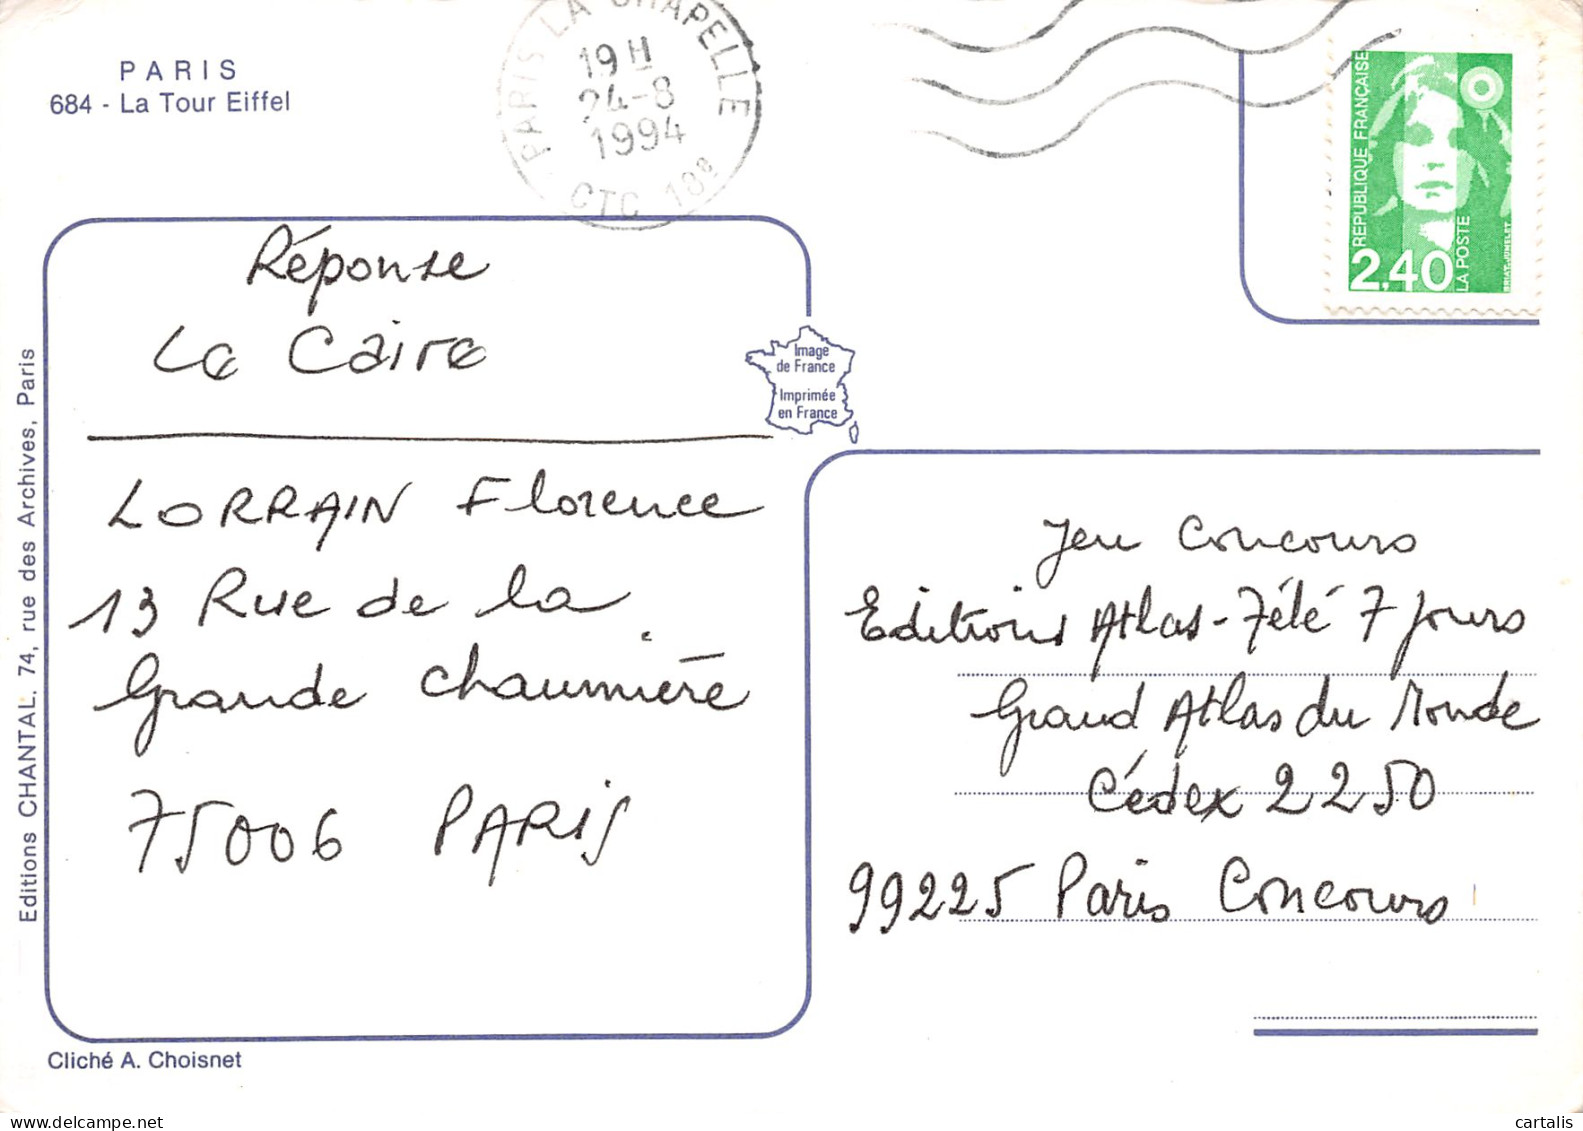 PARIS
684 - La Tour Eiffel
PARIS LA CHAPELLE
19H
24-8
1994
CTC 18e
REPUBLIQUE FRANÇAISE
2,40
LA POSTE
BRIAT-JUMELET
Réponse
Le Caire
Image
de France
Imprimée
en France
LORRAIN Florence
13 Rue de la
Grande Chaumière
75006 PARIS
Jeu Concours
Editions Atlas-Télé 7 Jours
Grand Atlas du Monde
Cédex 2250
99225 Paris Concours
Editions CHANTAL. 74, rue des Archives, Paris
Cliché A. Choisnet
delcampe.net
cartalis